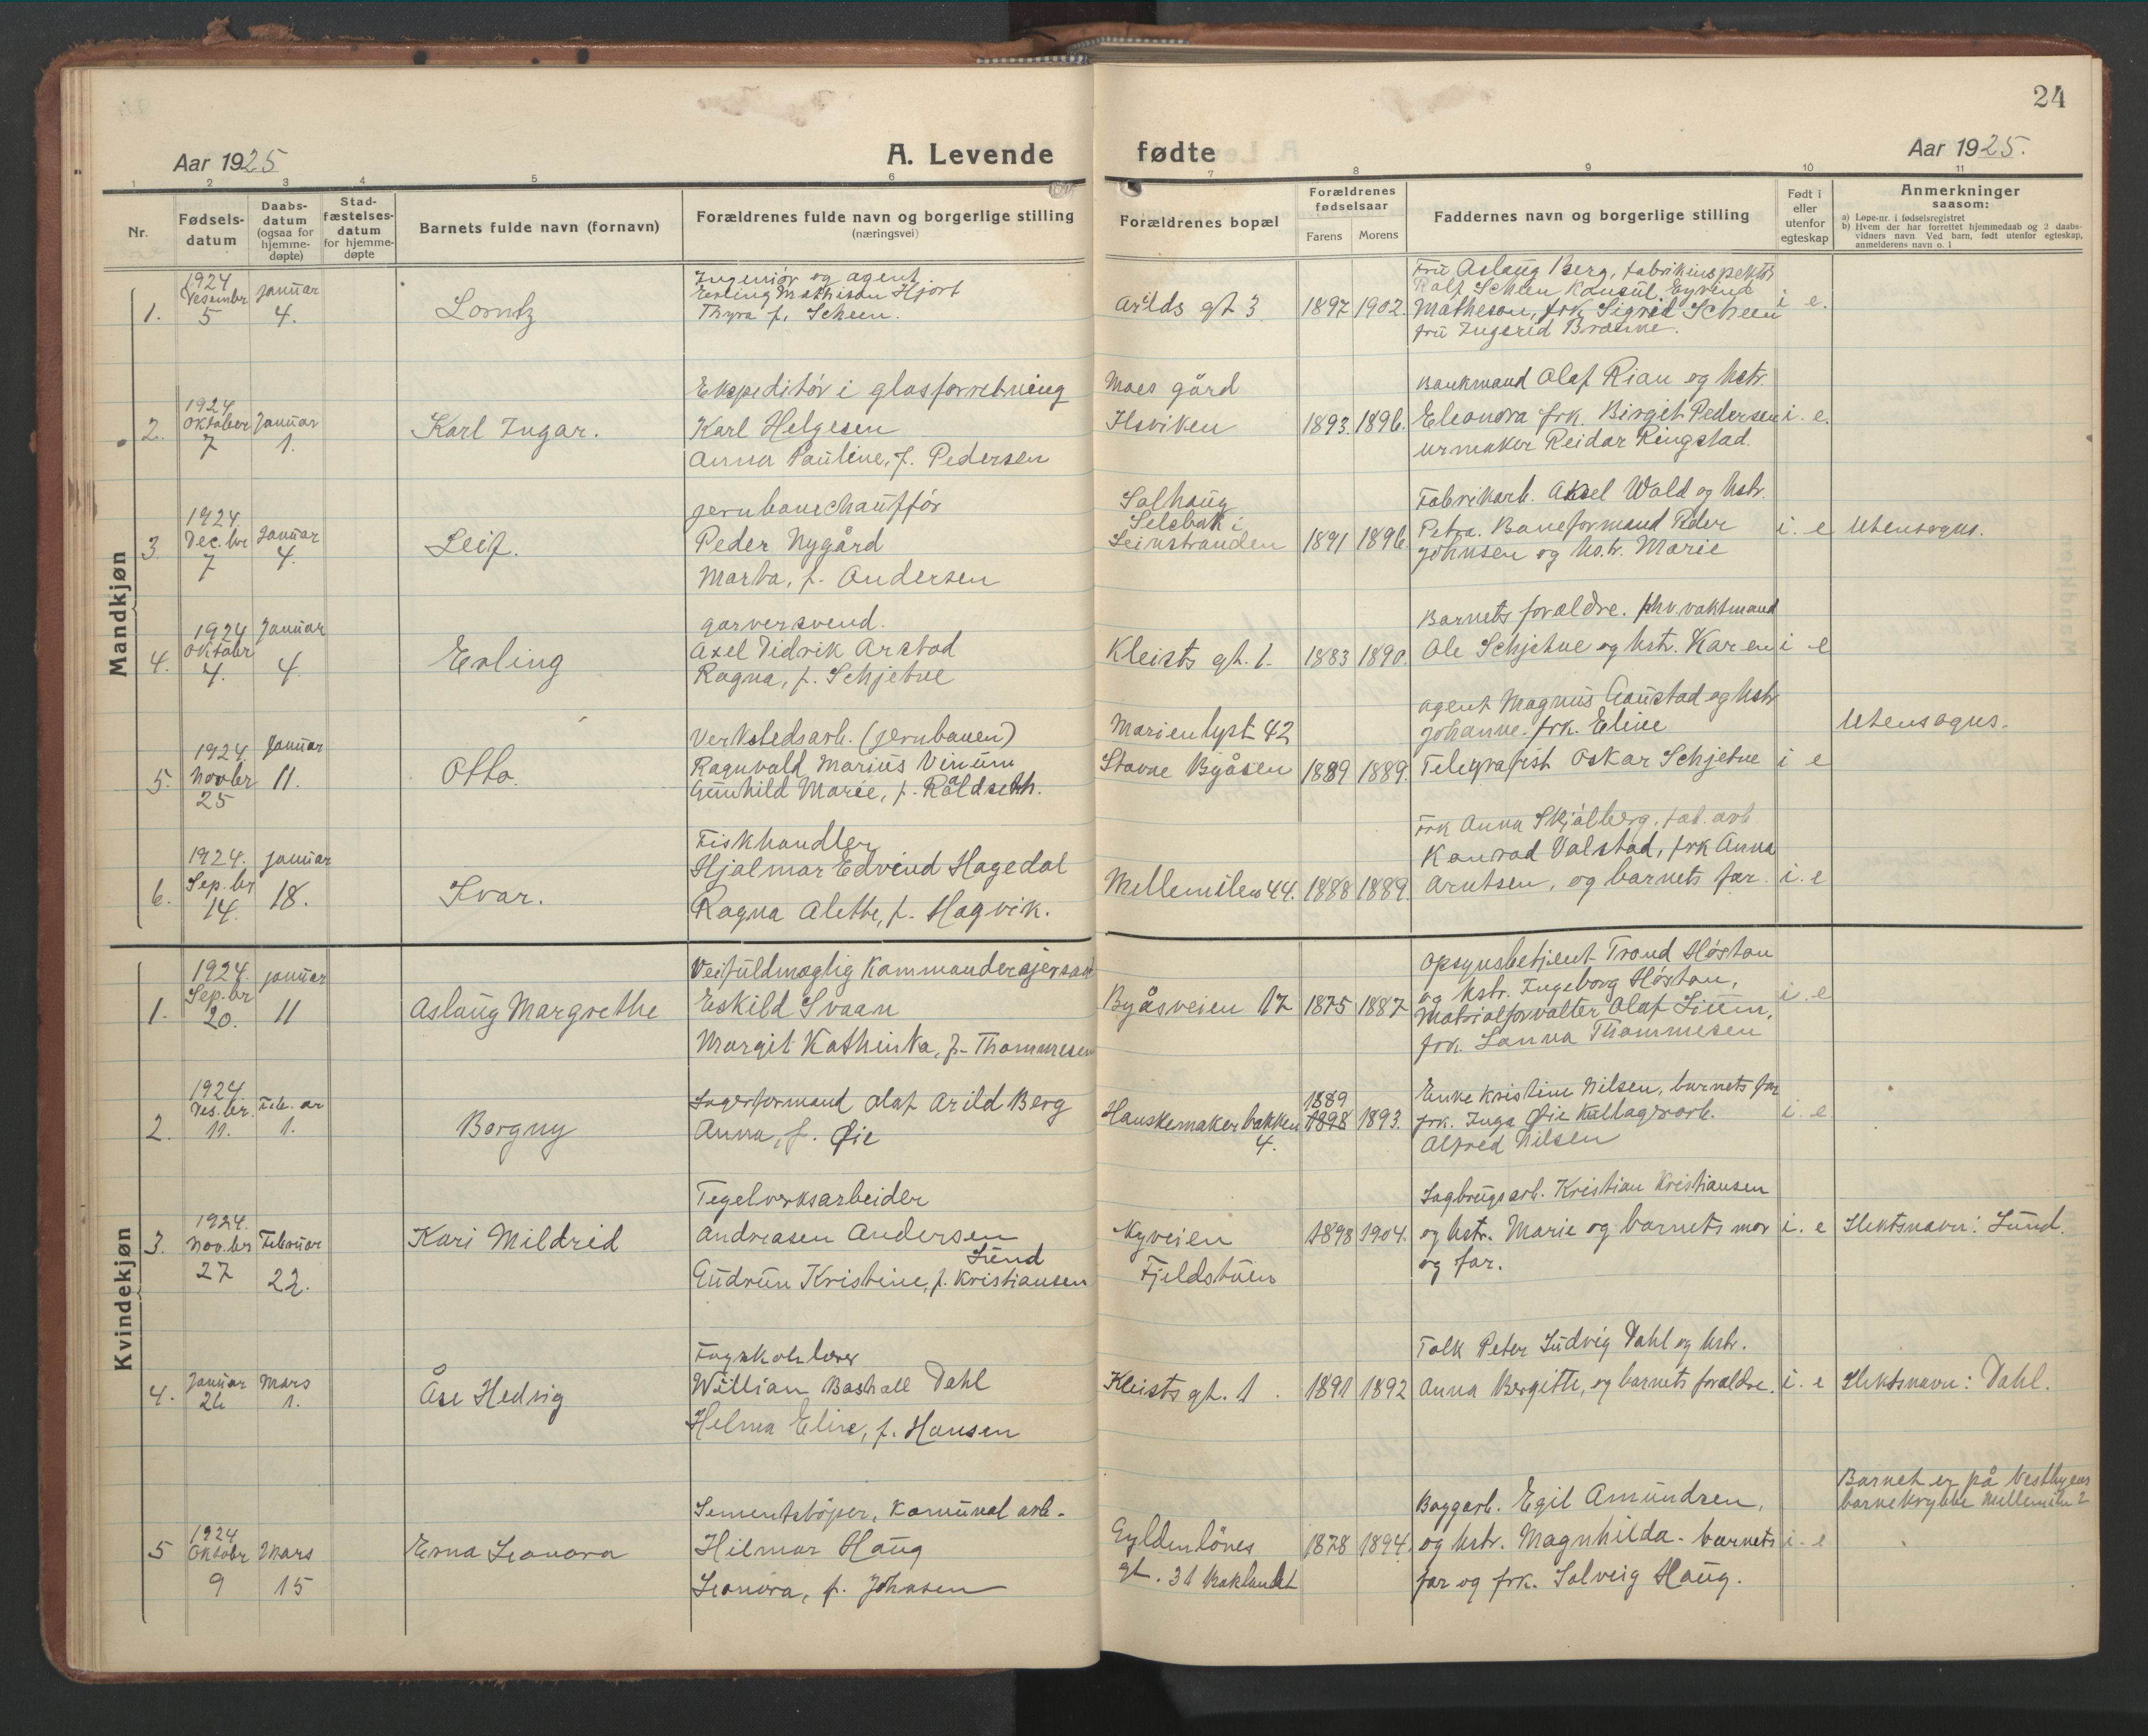 24
Aar 1925
A. Levende
fødte
Aar 1925.
1 2 3 4 5 6 7 8 9 10 11
Nr.
Fødsels-
datum
Daabs-
datum
(ogsaa for
hjemme-
døpte)
Stad-
fæstelses-
datum
for hjemme-
døpte
Barnets fulde navn (fornavn)
Forældrenes fulde navn og borgerlige stilling
(næringsvei)
Forældrenes bopæl
Forældrenes
fødselsaar
Farens Morens
Faddernes navn og borgerlige stilling
Født i
eller
utenfor
egteskap
Anmerkninger
saasom:
a) Løpe-nr. i fødselsregistret
b) Hvem der har forrettet hjemmedaab og 2 daabs-
vidners navn Ved barn, født utenfor egteskap,
anmelderens navn o. l
Mandkjøn
1.
1924
Desember
5
Januar
4.
Lorntz
Ingeniør og agent
Erling Mathison Hjort
Thyra f. Scheen.
Arilds gt 3
1897 1902.
Frü Aslaug Berg, fabrikinspektør
Ralf Scheen Konsul. Eyvind
Matheson, frk Sigrid Scheen
frü Ingerid Brænne.
i e.
2.
1924
Oktober
7
Januar
1.
Karl Ingar.
Ekspeditör i glasforretning
Karl Helgesen
Anna Pauline, f. Pedersen
Moes gård
Ilsviken
1893. 1896.
Bankmand Olaf Rian og hstr.
Eleonora frk. Birgit Pedersen
urmaker Reidar Ringstad.
i. e.
3.
1924
Dec.br
7
Januar
4.
Leif.
jernbanechauffør
Peder Nygård
Marta, f. Andersen
Solhaug
Selsbak i
Leinstranden
1891 1896
Fabrikarb. Aksel Wold og hstr.
Petra. Baneformand Peder
Johnsen og hstr. Marie
i. e
Utensogns.
4.
1924
Oktobr
4.
Januar
4.
Erling
garversvend.
Axel Didrik Arstad
Ragna, f. Schjetne
Kleists gt. 1.
1883 1890
Barnets forældre. fhv. vaktmand
Ole Schjetne og hstr. Karen
i e
5.
1924
Novbr
25
Januar
11.
Otto.
Verkstedsarb. (jernbanen)
Ragnvald Marius Vinum
Gunhild Marie, f. Råldseth.
Marienlyst 42
Stavne Byåsen
1889 1889.
Agent Magnus Gaustad og hstr
Johanne. frk. Eline
Telegrafist Oskar Schjetne
i e
Utensogns.
6.
1924.
Sep.br
14.
Januar
18.
Ivar.
Fiskhandler
Hjalmar Edvind Hagedal
Ragna Alette, f. Hagvik.
Mellemilen 44.
1888 1889.
Frk Anna Skjölberg, fab. arb
Konrad Valstad, frk Anna
Arntsen, og barnets far.
i. e
Kvindekjøn
1.
1924.
Sep.br
20.
januar
11
Aslaug Margrethe
Veifuldmægtig Kommandersjersant
Eskild Svaan
Margit Kathinka, f. Thommesen
Byåsveien 17
1875 1887
Opsynsbetjent Trond Höstan
og hstr. Ingeborg Höstan,
Matrialforvalter Olaf Lium,
frk. Sanna Thommesen
i. e
2.
1924
Des.br.
11.
Feb. ar
1.
Borgny
Lagerformand Olaf Arild Berg
Anna, f. Øie
Hanskemakerbakken
4.
1889
1898 1893.
Enke Kristine Nilsen, barnets far
frk. Inga Øie Kullagerarb.
Alfred Nilsen
i. e
3.
1924.
Nov.br
27
Februar
22.
Kari Mildrid
Tegelverksarbeider
Andreasen Andersen
Lund
Gudrun Kristine, f. Kristiansen
Nyveien
Fjeldstuen
1898 1904.
Sagbrugsarb. Kristian Kristiansen
og hstr. Marie og barnets mor
og far.
i. e
Slektsnavn: Lund.
4.
Januar
26
Mars
1.
Åse Hedvig
Fagskolelærer
William Bashall Dahl
Helma Elise, f. Hansen
Kleists gt. 1.
1891 1892
Tolk Peter Ludvig Dahl og hstr.
Anna Bergitte, og barnets forældre.
i. e
Slektsnavn: Dahl.
5
1924
Oktobr
9
Mars
15
Erna Leonora
Sementstöper, Komunal arb.
Hilmar Haug
Leonora, f. Johnsen
Gyldenlöves
gt. 31 Baklandet
1878 1894.
Byggarb. Egil Amundsen,
og hstr. Magnhilda - barnets
far og frk. Solveig Haug.
i. e
Barnet er på Vestbyens
barnekrybbe Mellemila 2